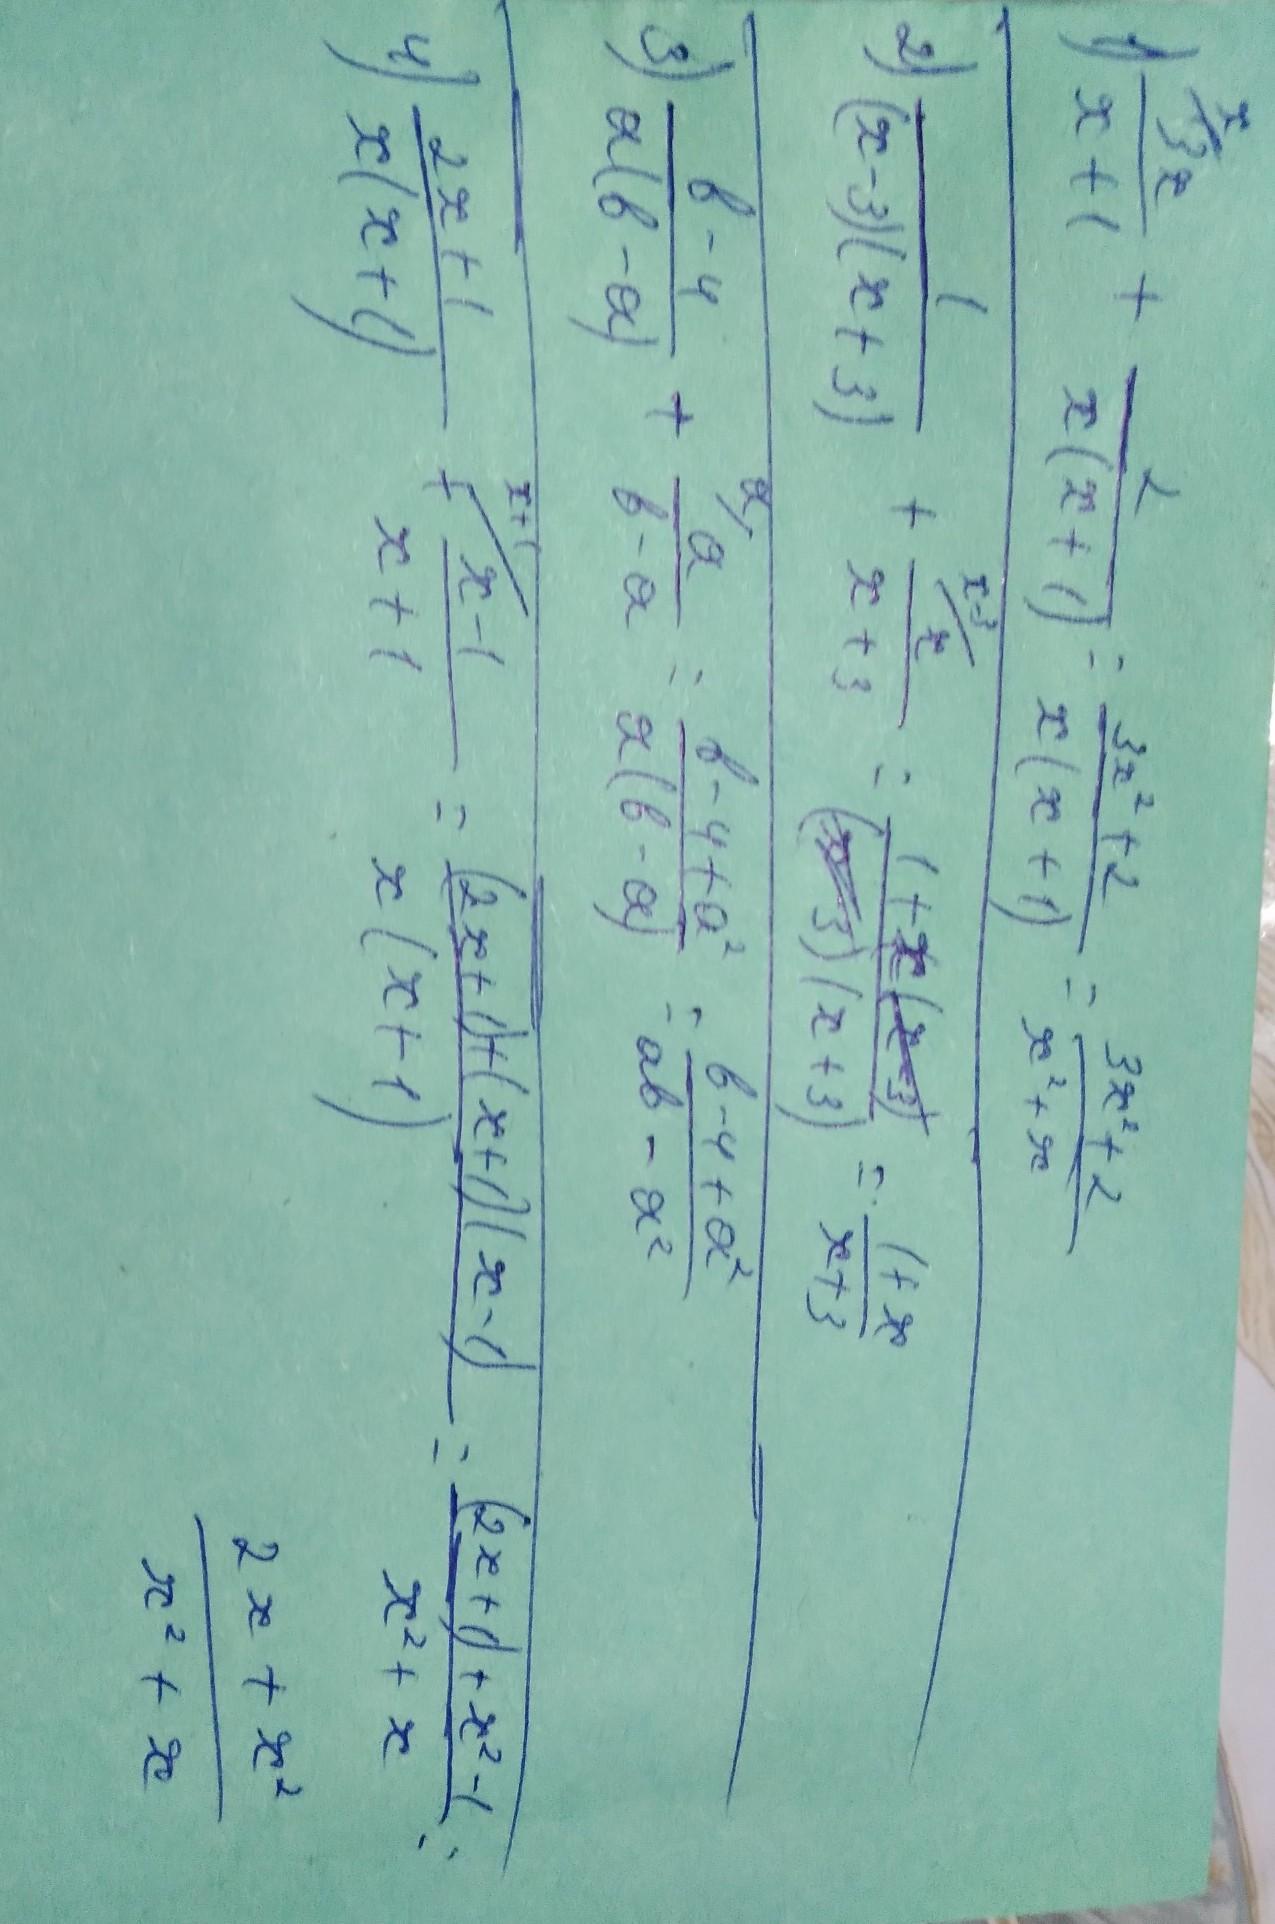 1) x/ 3x/(x+1) + 2/(x(x+1)) = (3x²+2)/(x(x+1)) = (3x²+2)/(x²+x)
2) 1/((x-3)(x+3)) + x-3/ x/(x+3) = (1+x(x-3))/((x-3)(x+3)) = (1+x)/(x+3)
3) (b-4)/(a(b-a)) + a/ a/(b-a) = (b-4+a²)/(a(b-a)) = (b-4+a²)/(ab-a²)
4) (2x+1)/(x(x+1)) + x+1/ (x-1)/(x+1) = ((2x+1)+(x+1)(x-1))/(x(x+1)) = ((2x+1)+x²-1)/(x²+x) =
(2x+x²)/(x²+x)